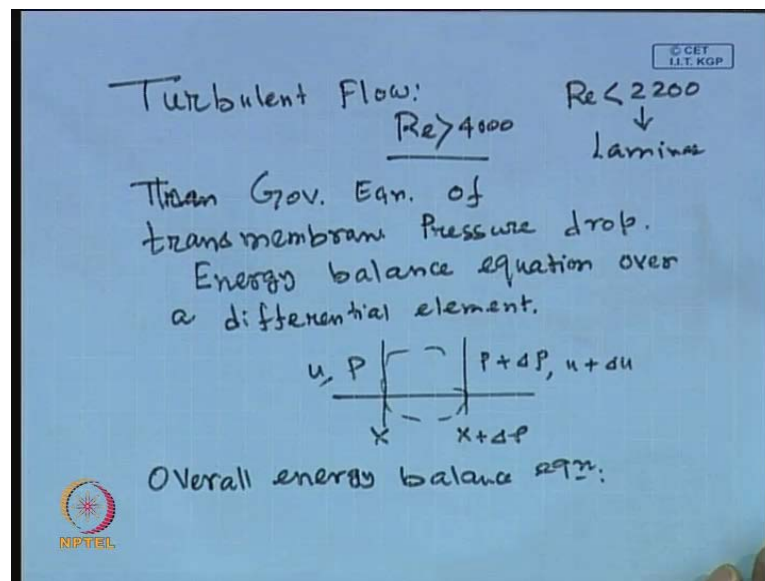 © CET
I.I.T. KGP
Turbulent Flow:
Re < 2200
Re > 4000
↓
Laminar
Gov. Eqn. of
transmembrane Pressure drop.
Energy balance equation over
a differential element.
u, P
P + ΔP, u + Δu
x
x + ΔP
Overall energy balance eqn:
NPTEL